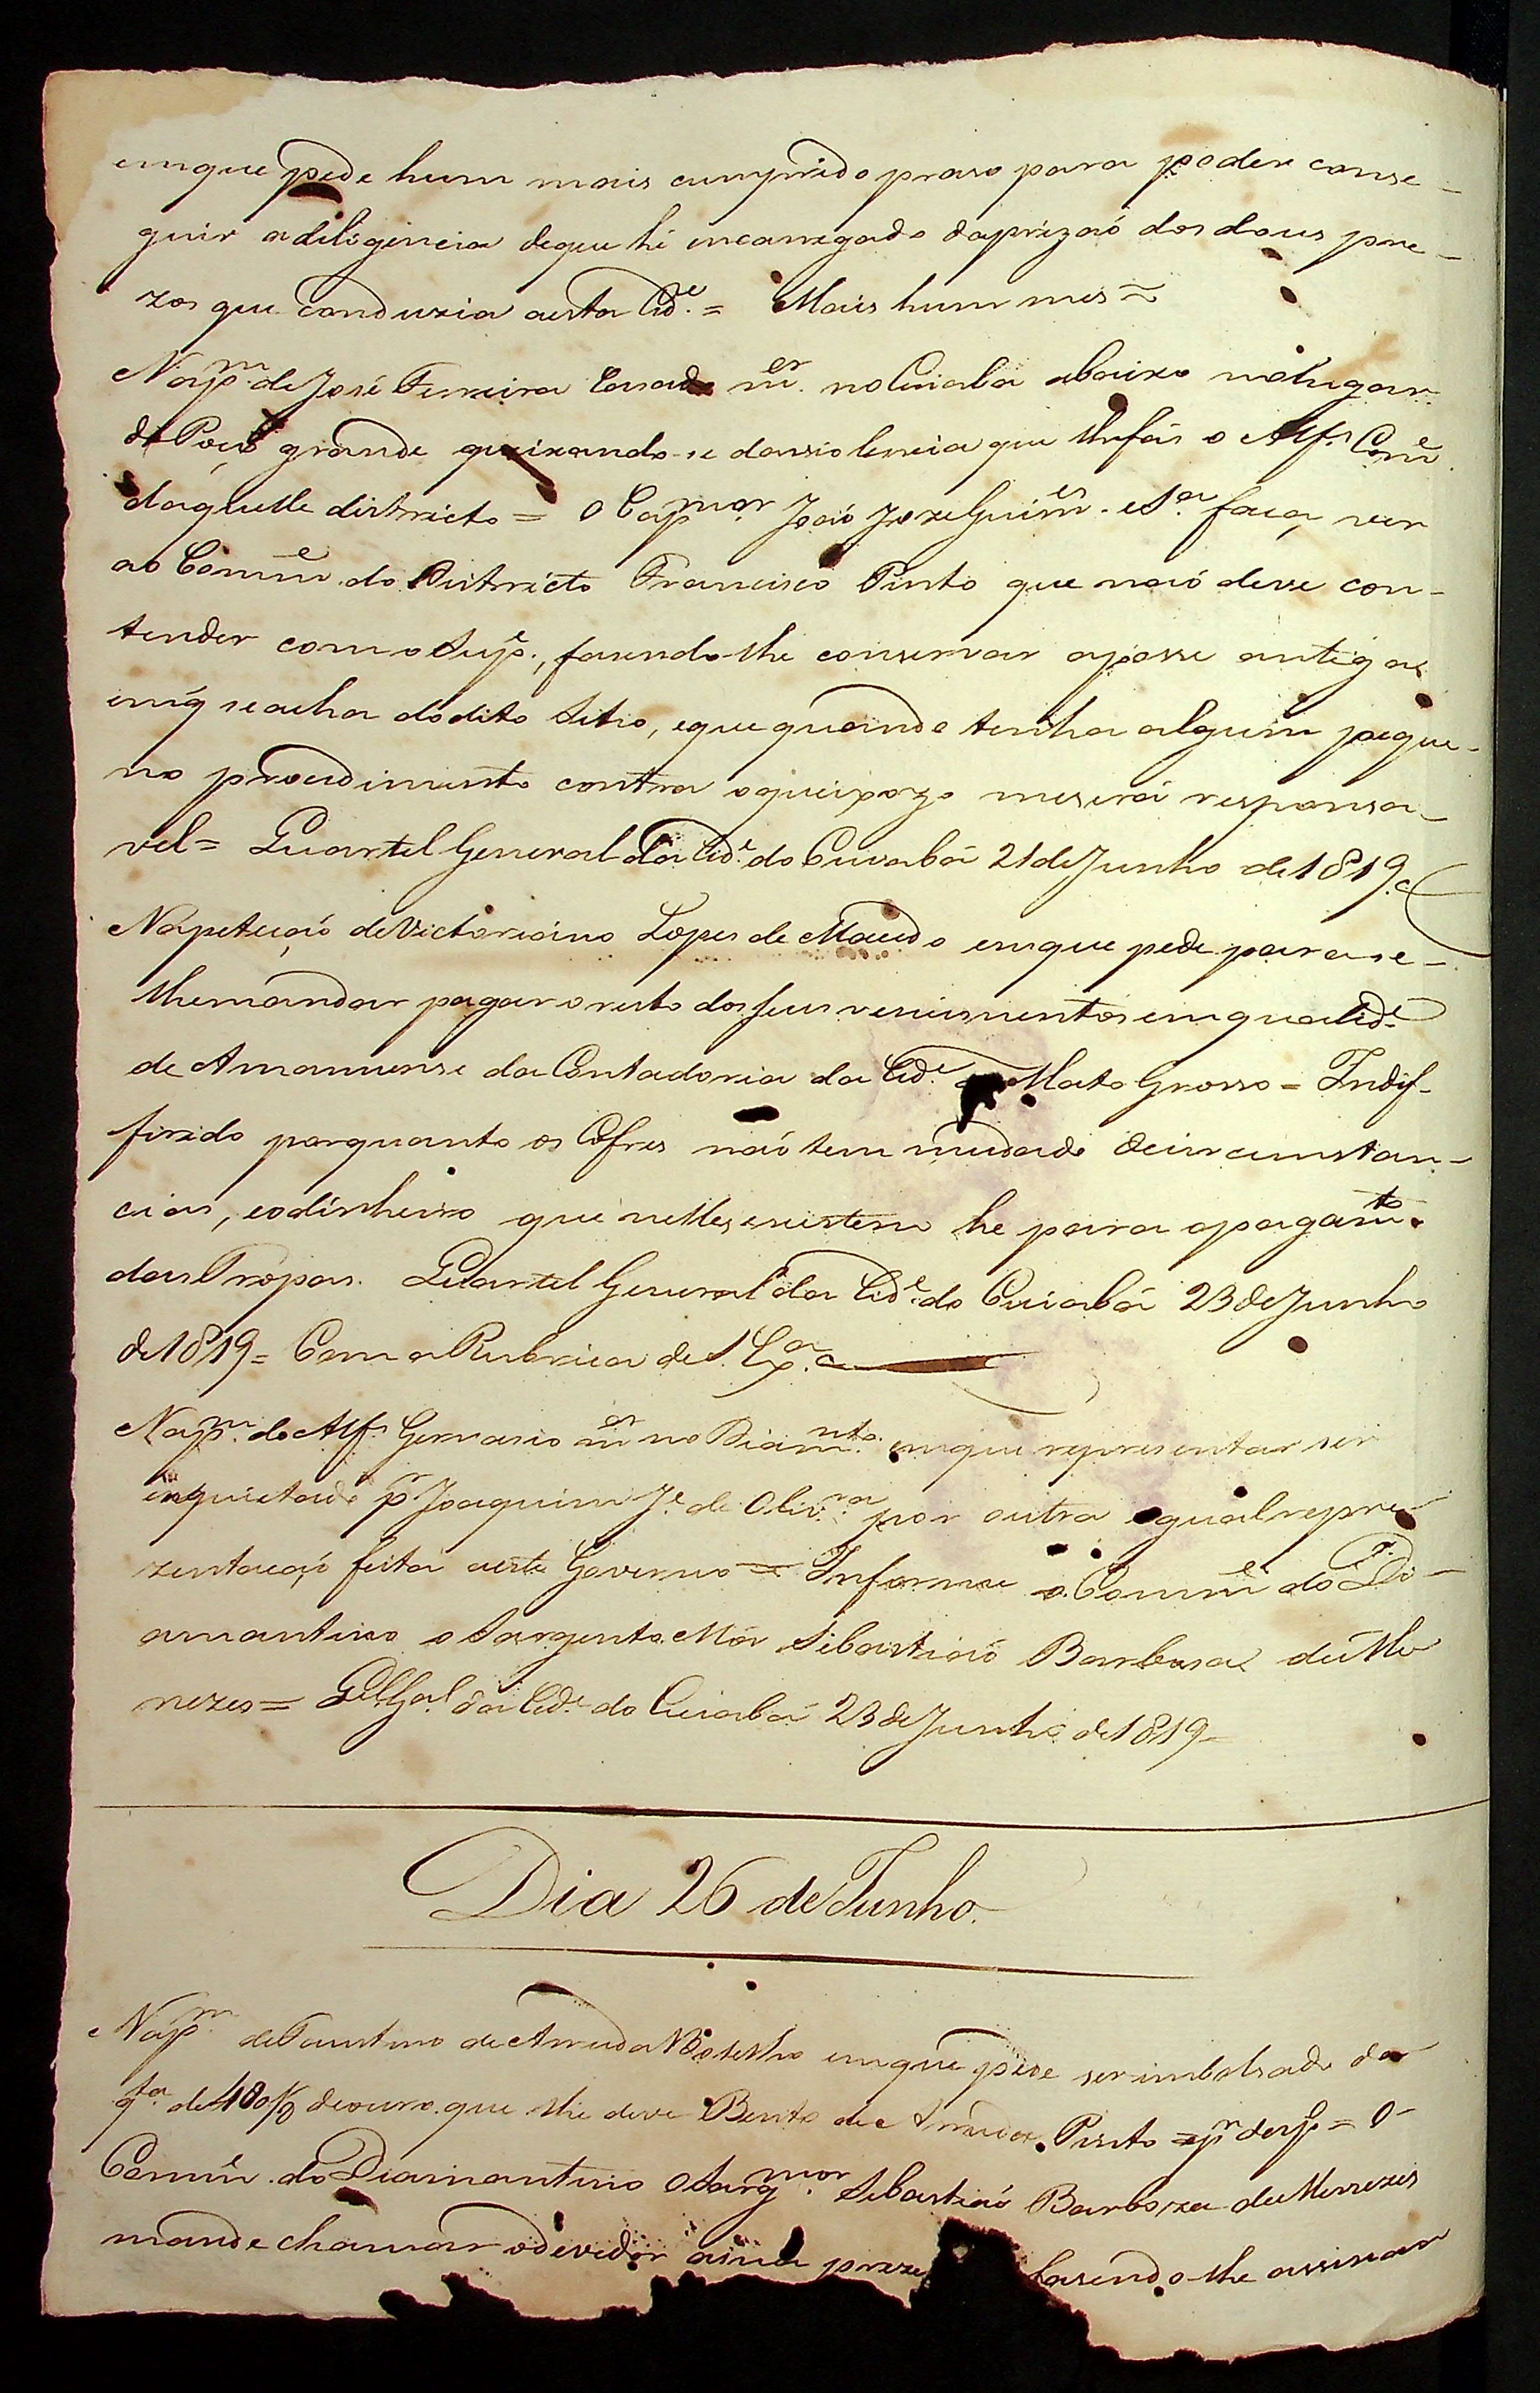 emque pede hum mais cumprido praso para poder conse-
guir a diligencia deque hé encarregado daprizaõ dos dous pre-
zos que conduzia aesta Cid.e = Mais hum mes =
Nap.m de José Ferreira Casado m.er no Cuiaba abaixo nolugar
do Poço grande queixando-se daviolencia que lhefás o Alf.s Com.e
daquelle districto = O Cap.mor Joaõ Joze Guim.es e S.a faça ver
ao Comm.e do Districto Francisco Pinto que naõ deve con-
tender como Sup.e, fazendo-lhe conservar aposse antiga
emq se acha dodito Sitio, eque quando tenha algum peque-
no procedimento contra oqueixozo meserá responsa-
vel = Quartel General da Cid.e do Cuiabá 21 de Junho de 1819.
Napetiçaõ de Victoriano Lopes de Macedo emque pede para se-
lhemandar pagar o resto dos seus vencimentos emqualid.e
de Amanuense da Contadoria da Cid.e Mato Grosso = Indif-
firido porquanto os Cofres naõ tem mudado decircumstan-
cias, eodinheiro que nelles existem he para opagam.to
das Tropas. Quartel General da Cid.e do Cuiabá 23 de Junho
de 1819 = Com a Rubrica de S. Ex.a
Nap.m do Alf.s Gervasio m.or no Diam.nto emque representar ser
inquietado p.r Joaquim J.e de Oliv.ra por outra egual repre-
zentaçaõ feita aeste Governo = Informe o Comm.e do Di-
amantino o Sargento Mór Sebastiaõ Barbosa de Me
nezes = Q.el G.al da Cid.e do Cuiabá 23 de Junho de 1819 =
Dia 26 de Junho.
Nap.m de Faustino de Arruda Botelho emque pede ser imbolsado da
q.ta de 400/8 deouro que lhe deve Bento de Arruda Pinto = O
Comm.e do Diamantino o Sarg.mor Sebastiaõ Barboza de Menezes
mande chamar odevedor asua preze fasendo-lhe assinar